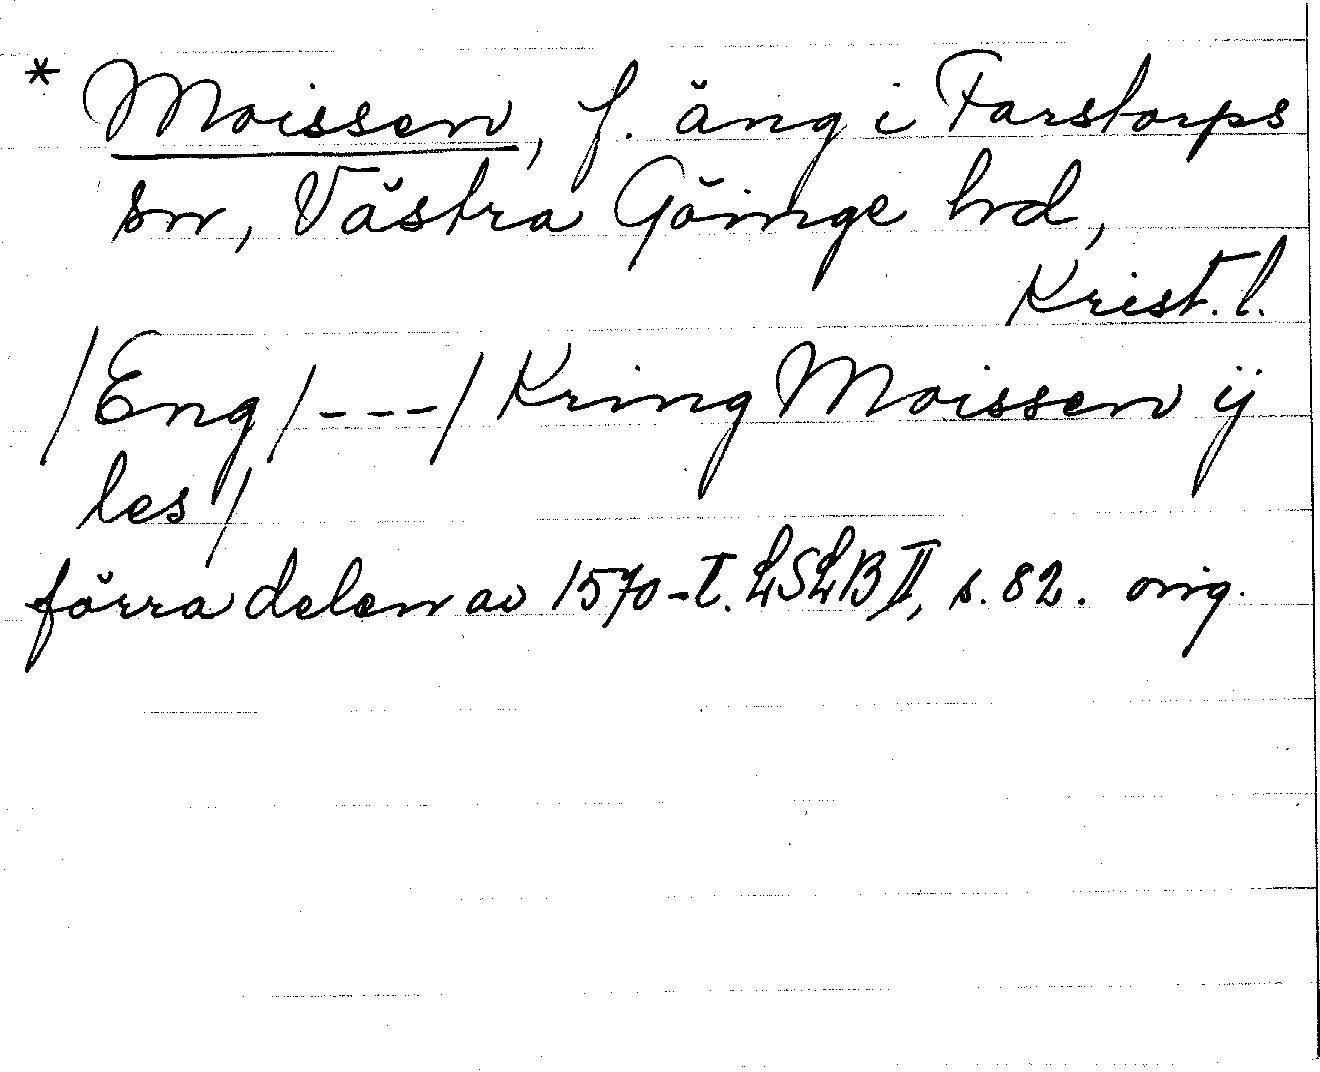 * Moissen, f. äng i Farstorps
sn, Västra Göinge hd,
Krist. l.
/Eng/---/Kring Moissen ij
les/
förra delen av 1570-t. LSLB II, s. 82. orig.